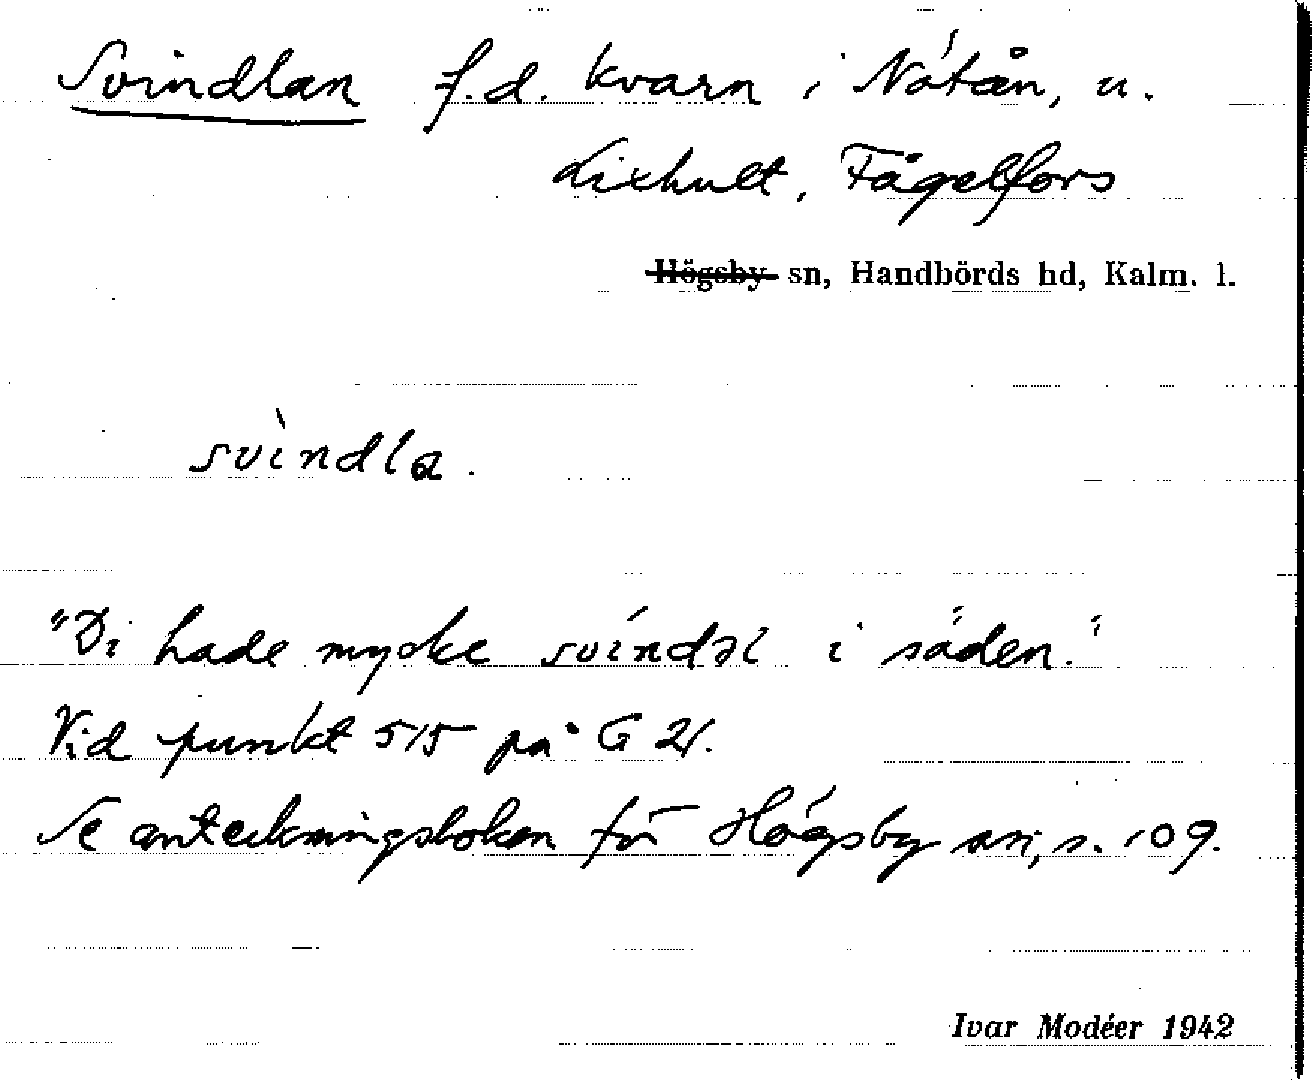 Svindlan f.d. kvarn i Nötån, u.
Lixhult, Fågelfors
Högsby sn, Handbörds hd, Kalm. l.
svìndla.
"Di hade mycke svíndəl i säden."
Vid punkt 515 på G 21.
Se anteckningsboken för Högsby sn, s. 109.
Ivar Modéer 1942